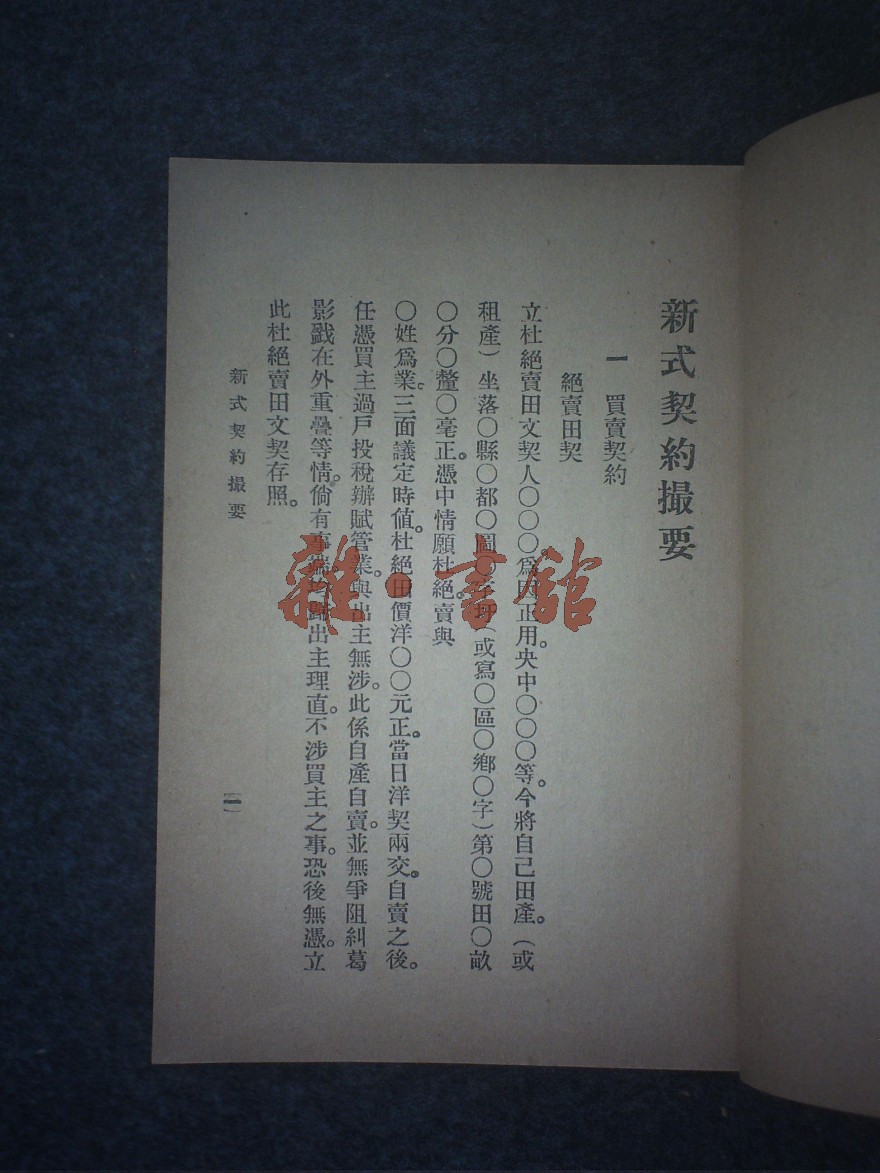 新式契約撮要
一 買賣契約
絕賣田契
立杜絕賣田文契人〇〇〇。爲因正用。央中〇〇〇等。今將自己田產。(或
租產)坐落〇縣〇都〇圖〇字圩(或寫〇區〇鄉〇字)第〇號田〇畝
〇分〇釐〇毫正。憑中情願杜絕。賣與
〇姓爲業。三面議定時値。杜絕田價洋〇〇元正。當日洋契兩交。自賣之後。
任憑買主過戶投稅辦賦管業。與出主無涉。此係自產自賣。並無爭阻糾葛
影戤在外重疊等情。倘有事端。歸出主理直。不涉買主之事。恐後無憑。立
此杜絕賣田文契存照。
新式契約撮要
一
雜·書館